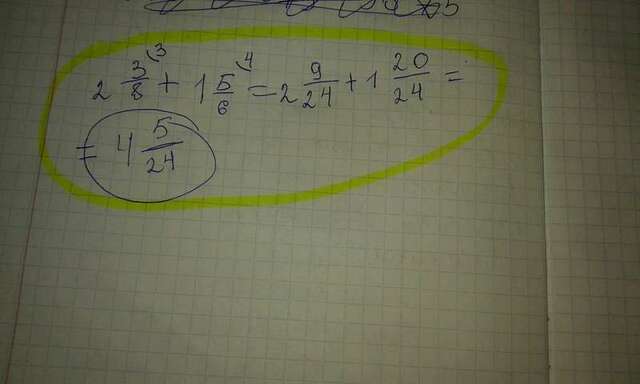 2 3/8 + 1 5/6 = 2 9/24 + 1 20/24 =
= 4 5/24